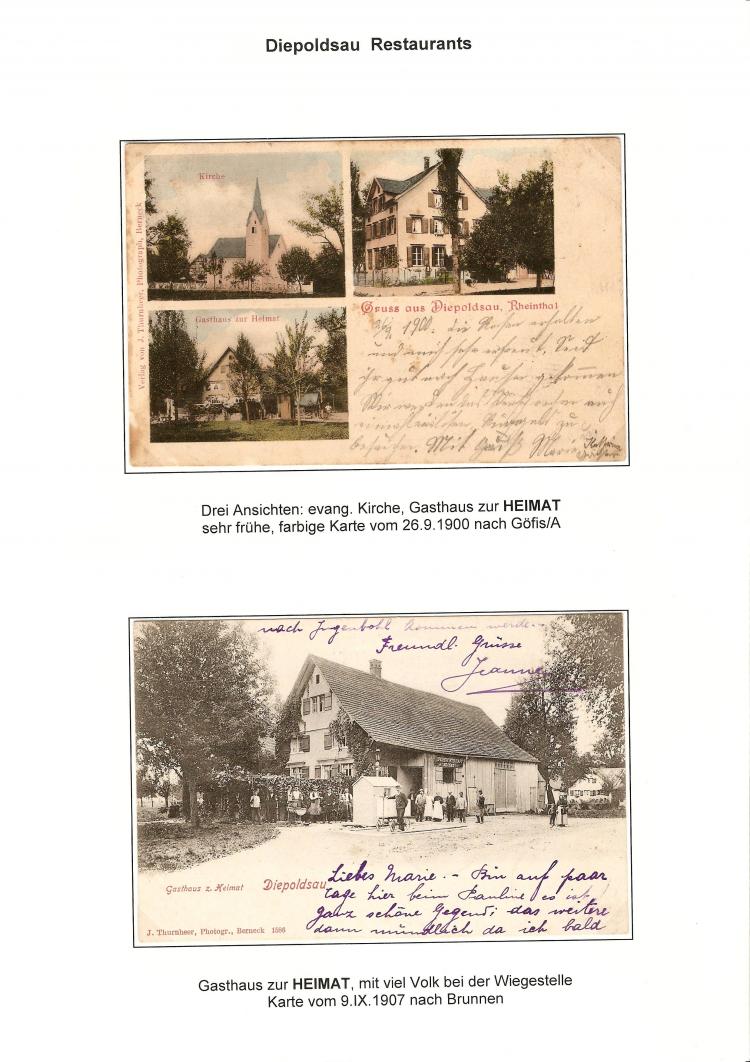 Diepoldsau Restaurants
Kirche
Verlag von J. Thurnheer, Photograph, Berneck
Gruss aus Diepoldsau, Rheinthal
Gasthaus zur Heimat
1900. die Rosen erhalten
und mich sehr erfreut. Seid
ihr gut nach Hause gekommen
Wir werden
einmal zu
besuchen. Mit Gruß Marie
Drei Ansichten: evang. Kirche, Gasthaus zur HEIMAT
sehr frühe, farbige Karte vom 26.9.1900 nach Göfis/A
nach Ingenbohl kommen werde.-
Freundl. Grüsse
Jeanne
Gasthaus z. Heimat Diepoldsau
Liebes Marie. - Bin auf paar
tage hier beim Pauline es ist
ganz schöne Gegend; das weitere
dann mündlach da ich bald
J. Thurnheer, Photogr., Berneck 1586
Gasthaus zur HEIMAT, mit viel Volk bei der Wiegestelle
Karte vom 9.IX.1907 nach Brunnen